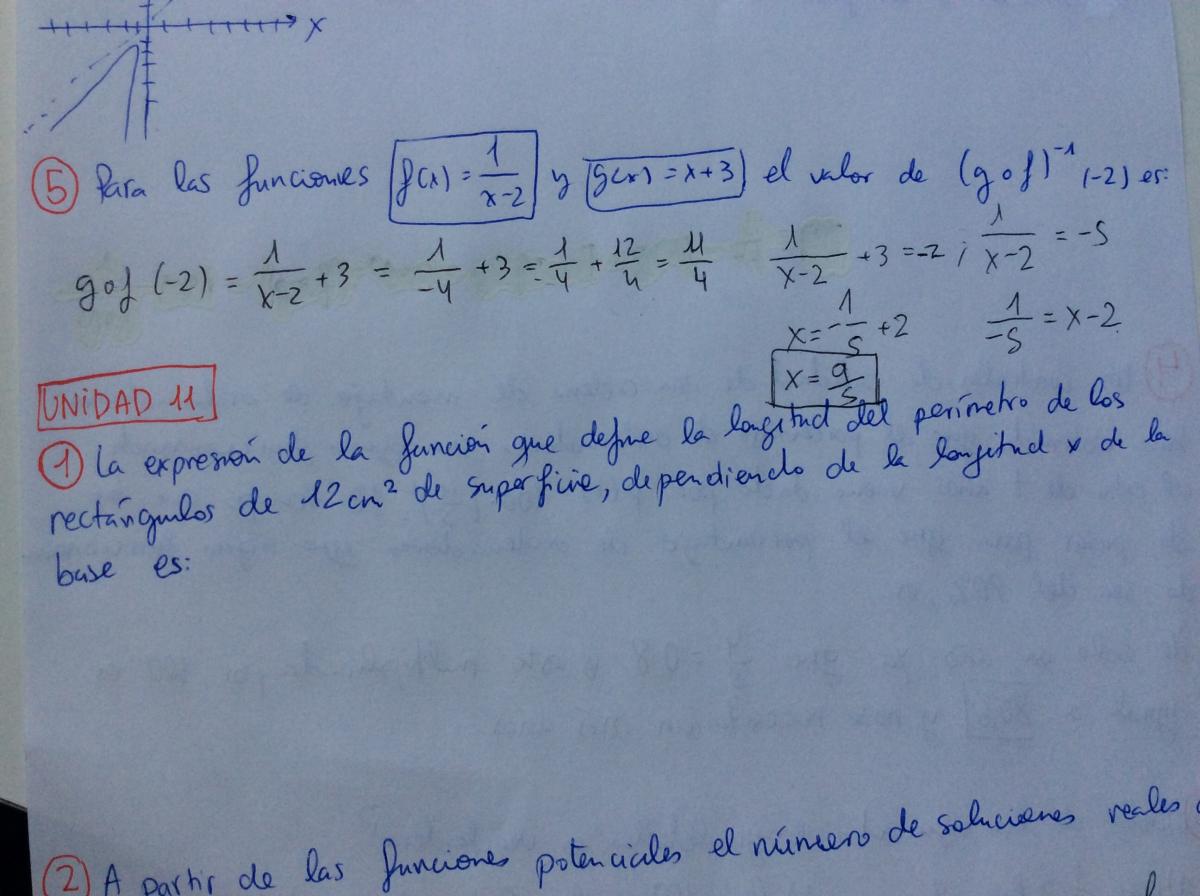 x
5 Para las funciones f(x) = 1/(x-2) y g(x) = x+3 el valor de (g o f)⁻¹ (-2) es:
g o f (-2) = 1/(x-2) + 3 = 1/-4 + 3 = -1/4 + 12/4 = 11/4
1/(x-2) + 3 = -2 ; 1/(x-2) = -5
x = -1/5 + 2
1/-5 = x-2
x = 9/5
UNIDAD 11
1 La expresión de la función que define la longitud del perímetro de los
rectángulos de 12 cm² de superficie, dependiendo de la longitud x de la
base es:
2 A partir de las funciones potenciales el número de soluciones reales